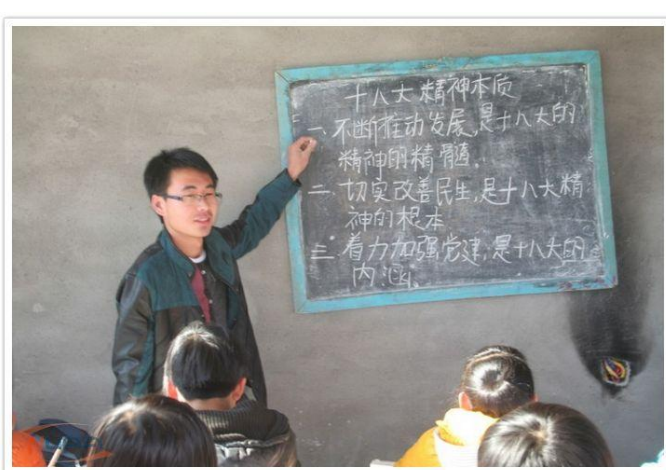 十八大精神本质
一、不断推动发展,是十八大的
精神的精髓。
二、切实改善民生,是十八大精
神的根本
三、着力加强党建,是十八大的
内